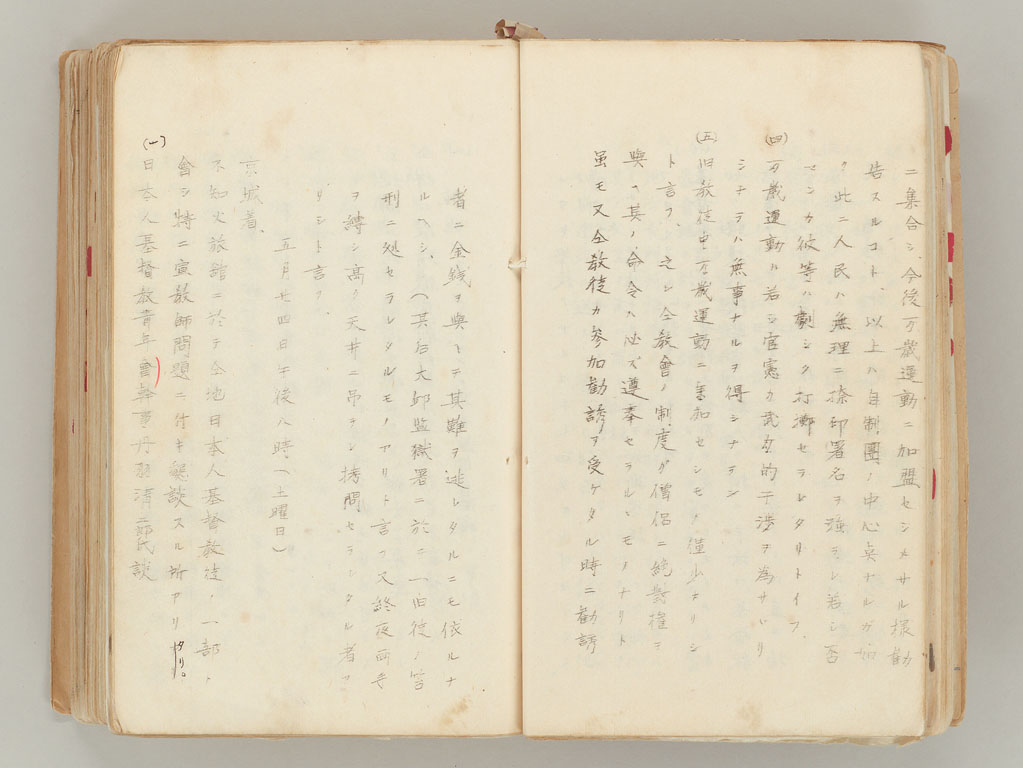 ニ集合シ、今後万歳運動ニ加盟セシメサル様勧
告スルコト、以上ハ自制團ノ中心点ナルガ如
ク此ニ人民ハ無理ニ捺印署名ヲ強ヒレ若シ否
センカ彼等ハ劇シク打擲セラレタリトイフ、
(四)万歳運動ハ若シ官憲カ武力的干渉ヲ為サヾリ
シナラハ無事ナルヲ得シナラン
(五)旧教徒中万歳運動ニ参加セシモノ僅少ナリシ
ト言フ、之レ仝教會ノ制度ガ僧侶ニ絶對権ヲ
與ヘ其ノ命令ハ必ズ遵奉セラルヽモノナリト
虽モ又仝教徒カ参加勧誘ヲ受ケタル時ニ勧誘
者ニ金銭ヲ與ヘテ其難ヲ逃レタルニモ依ルナ
ルヘシ、(其后大邱監獄署ニ於テ一旧徒ノ笞
刑ニ処セラレタルモノアリト言フ又終夜両手
ヲ縛シ高ク天井ニ吊ラシ拷問セラレタル者ア
リシト言フ、
五月廿四日午後八時(土曜日)
京城着、
不知火旅舘ニ於テ仝地日本人基督教徒ノ一部ト
會シ特ニ宣教師問題ニ付キ懇談スル所アリタリ。
(一)日本人基督教青年會幹事丹羽清二郎氏談